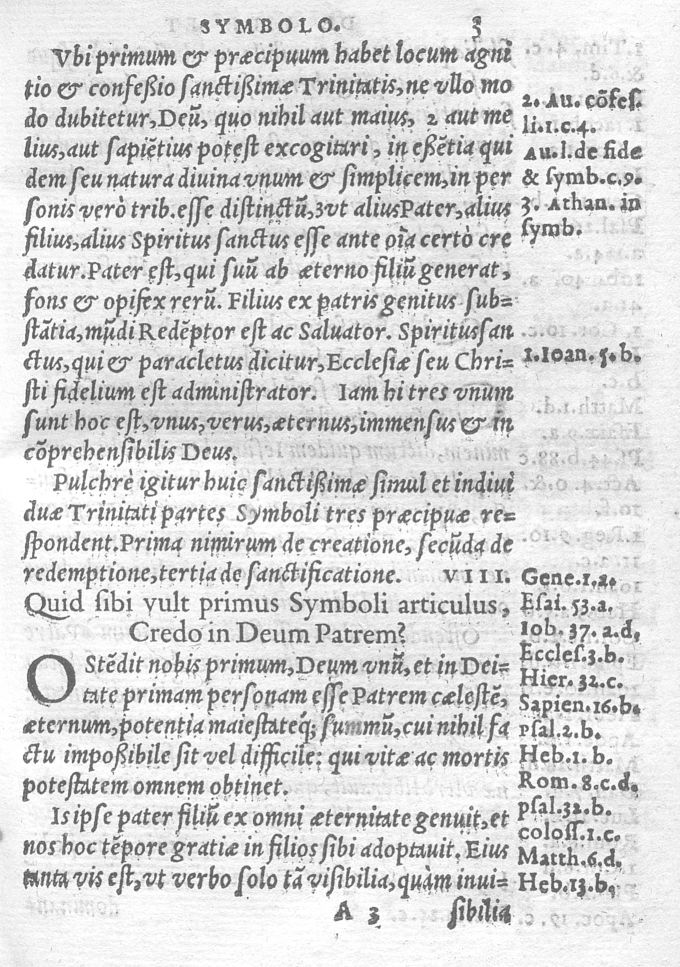 SYMBOLO. 3
Vbi primum & præcipuum habet locum agni
tio & confeßio sanctißimæ Trinitatis, ne vllo mo
do dubitetur, Deũ, quo nihil aut maius, 2 aut me
lius, aut sapiẽtius potest excogitari, in eßẽtia qui
dem seu natura diuina vnum & simplicem, in per
sonis verò trib. esse distinctũ, 3 vt alius Pater, alius
filius, alius Spiritus sanctus esse ante oĩa certò cre
datur. Pater est, qui suũ ab æterno filiũ generat,
fons & opifex rerũ. Filius ex patris genitus sub=
stãtia, mũdi Redẽptor est ac Saluator. Spiritus san
ctus, qui & paracletus dicitur, Ecclesiæ seu Chri=
sti fidelium est administrator. Iam hi tres vnum
sunt hoc est, vnus, verus, æternus, immensus & in
cõprehensibilis Deus.
Pulchrè igitur huic sanctißimæ simul et indiui
duæ Trinitati partes Symboli tres præcipuæ re=
spondent. Prima nimirum de creatione, secũda de
redemptione, tertia de sanctificatione. VIII.
Quid sibi vult primus Symboli articulus,
Credo in Deum Patrem?
OStẽdit nobis primum, Deum vnũ, et in Dei=
tate primam personam esse Patrem cælestẽ,
æternum, potentia maiestateq; summũ, cui nihil fa
ctu impoßibile sit vel difficile: qui vitæ ac mortis
potestatem omnem obtinet.
Is ipse pater filiũ ex omni æternitate genuit, et
nos hoc tẽpore gratiæ in filios sibi adoptauit. Eius
tanta vis est, vt verbo solo tã visibilia, quàm inui=
A 3 sibilia
2. Au. cõfes.
li.1.c.4.
Au.l.de fide
& symb.c.9.
3. Athan. in
symb.
1. Ioan. 5. b.
Gene.1.a.
Esai. 53.a.
Iob. 37. a.d.
Eccles.3.b.
Hier. 32.c.
Sapien.16.b.
psal.2.b.
Heb.1. b.
Rom. 8.c.d.
psal.32.b.
coloss.1.c.
Matth.6.d.
Heb.13.b.